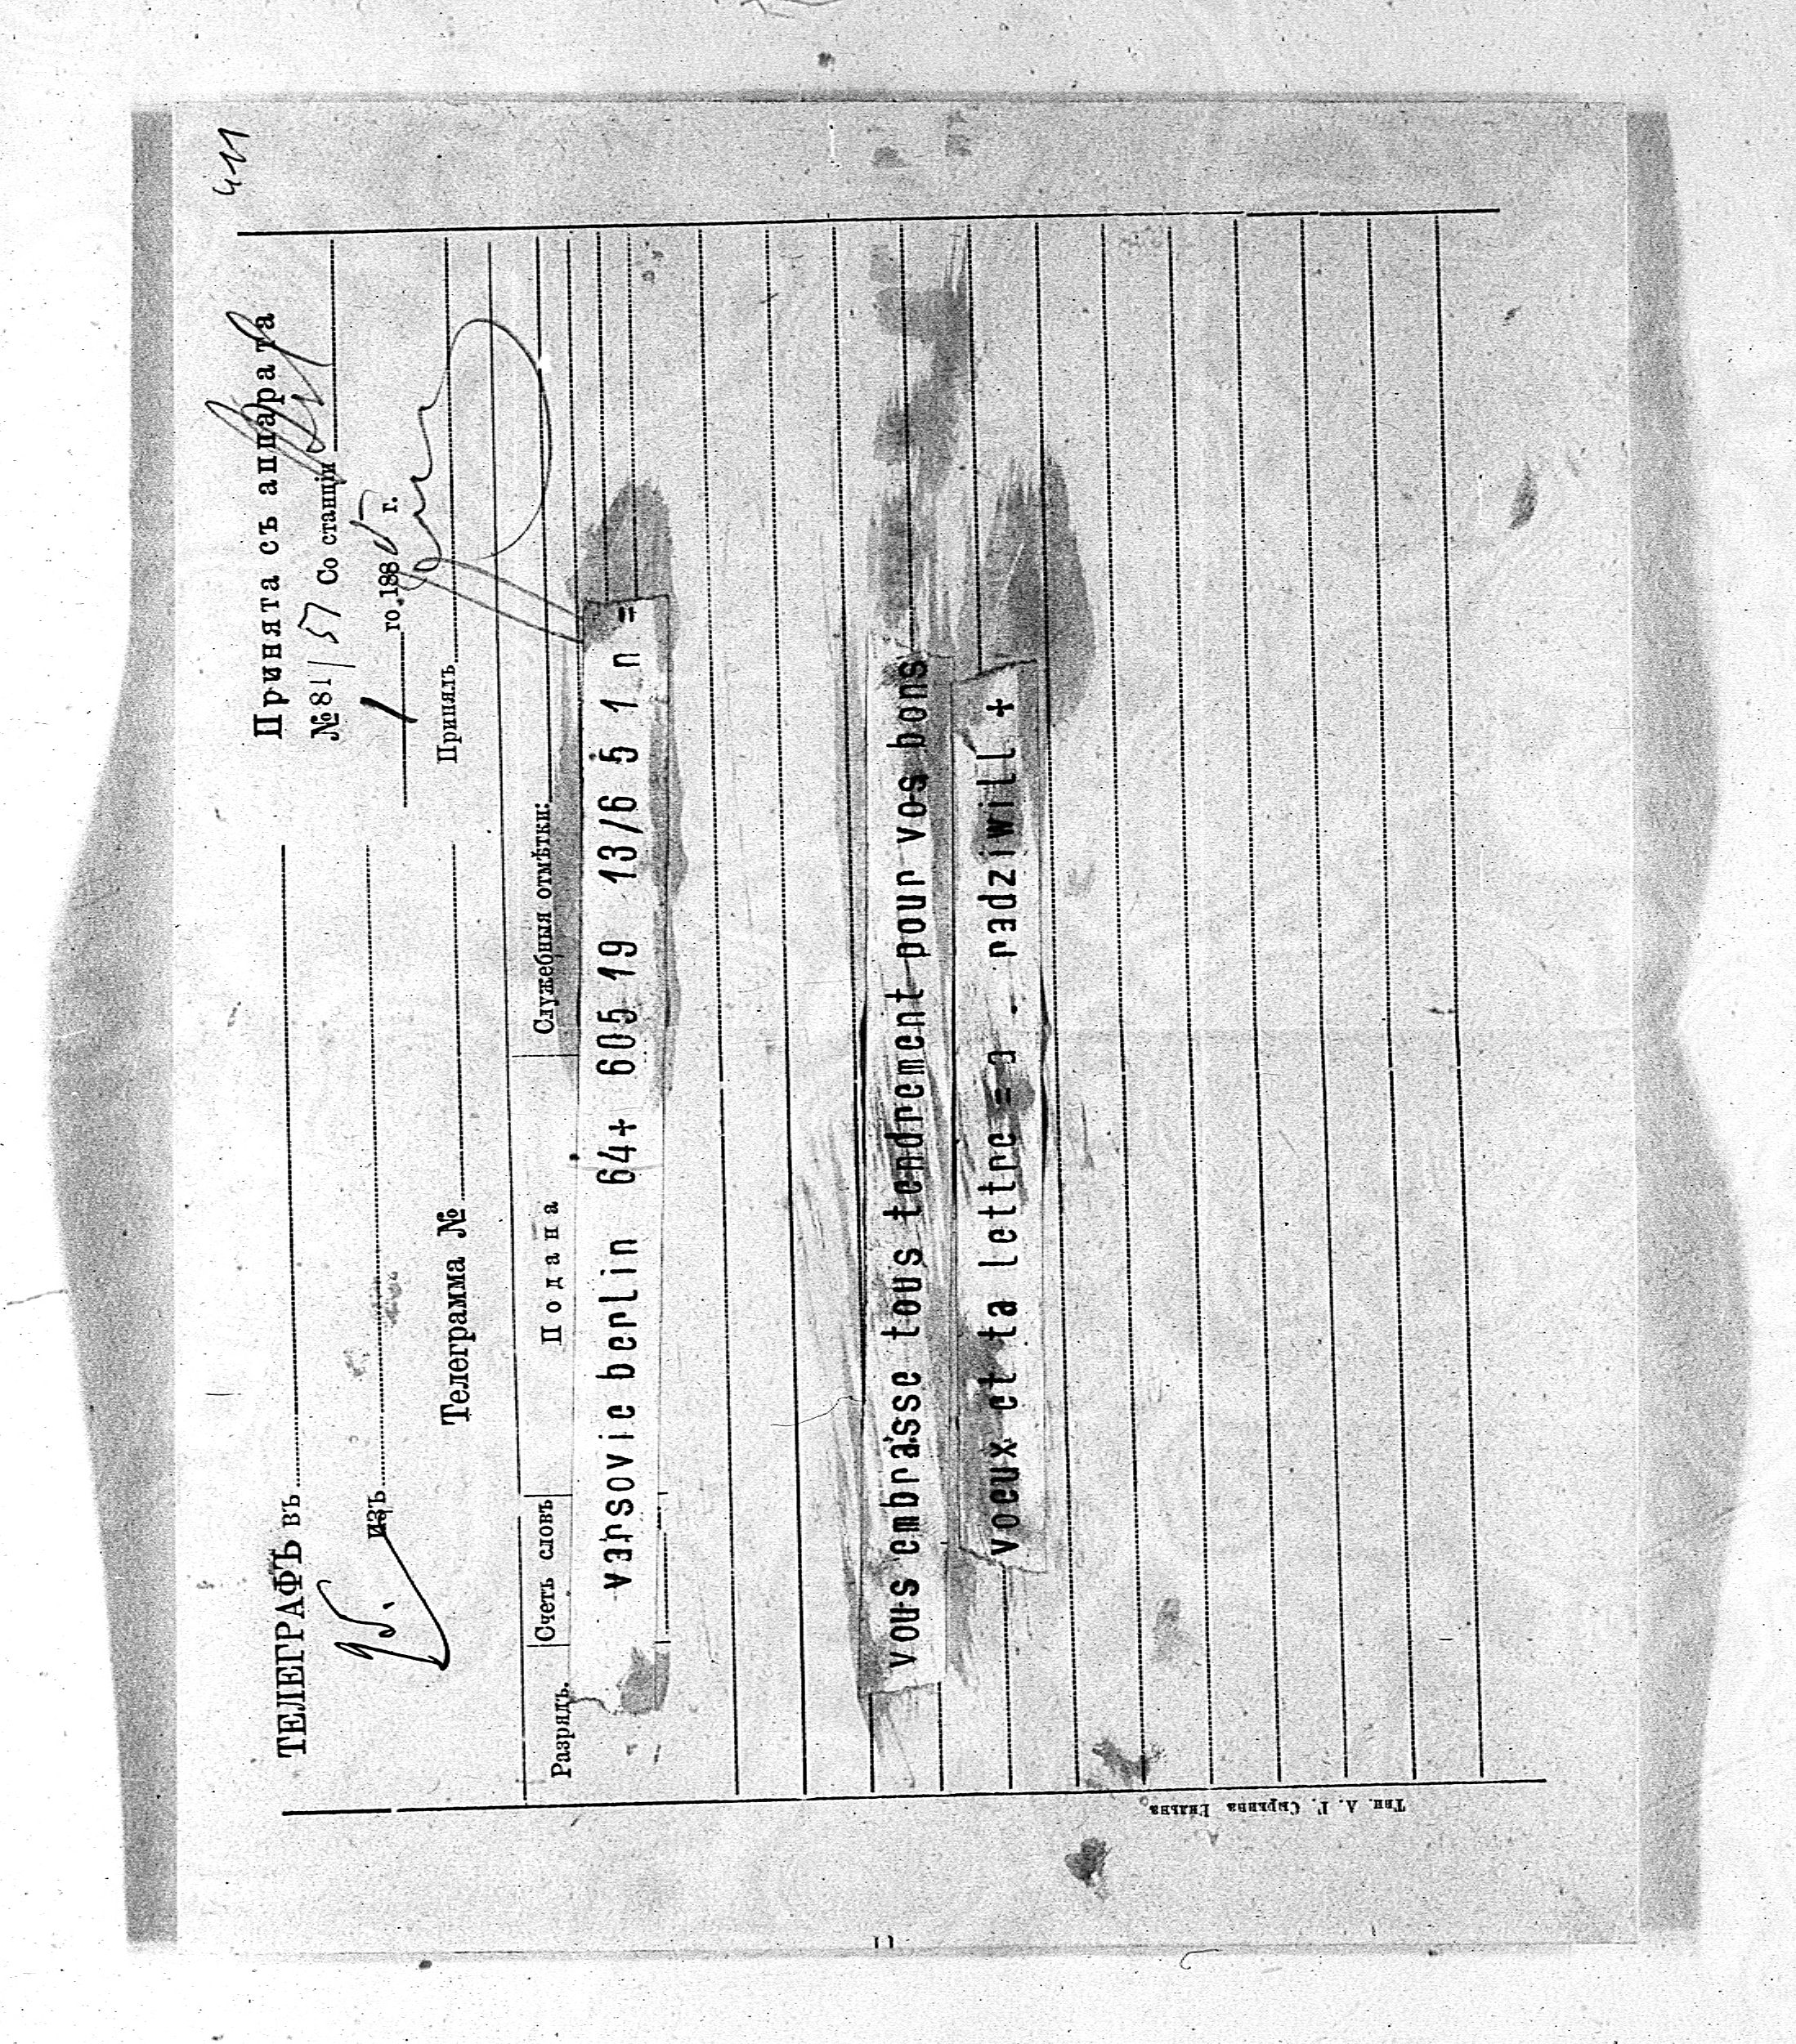 411
ТЕЛЕГРАФЪ въ
изъ
Телеграмма №
Принята съ аппарата
№ 81/57 Со станціи
1 го 188 г.
Принялъ
Разрядъ. Счетъ словъ Подана Служебныя отмѣтки:
varsovie berlin 64+ 605 19 13/6 5 1 n =
vous embrasse tous tendrement pour vos bons
voeux et ta lettre = . radziwill +
Тип. А. Г. Сыркина Вильна